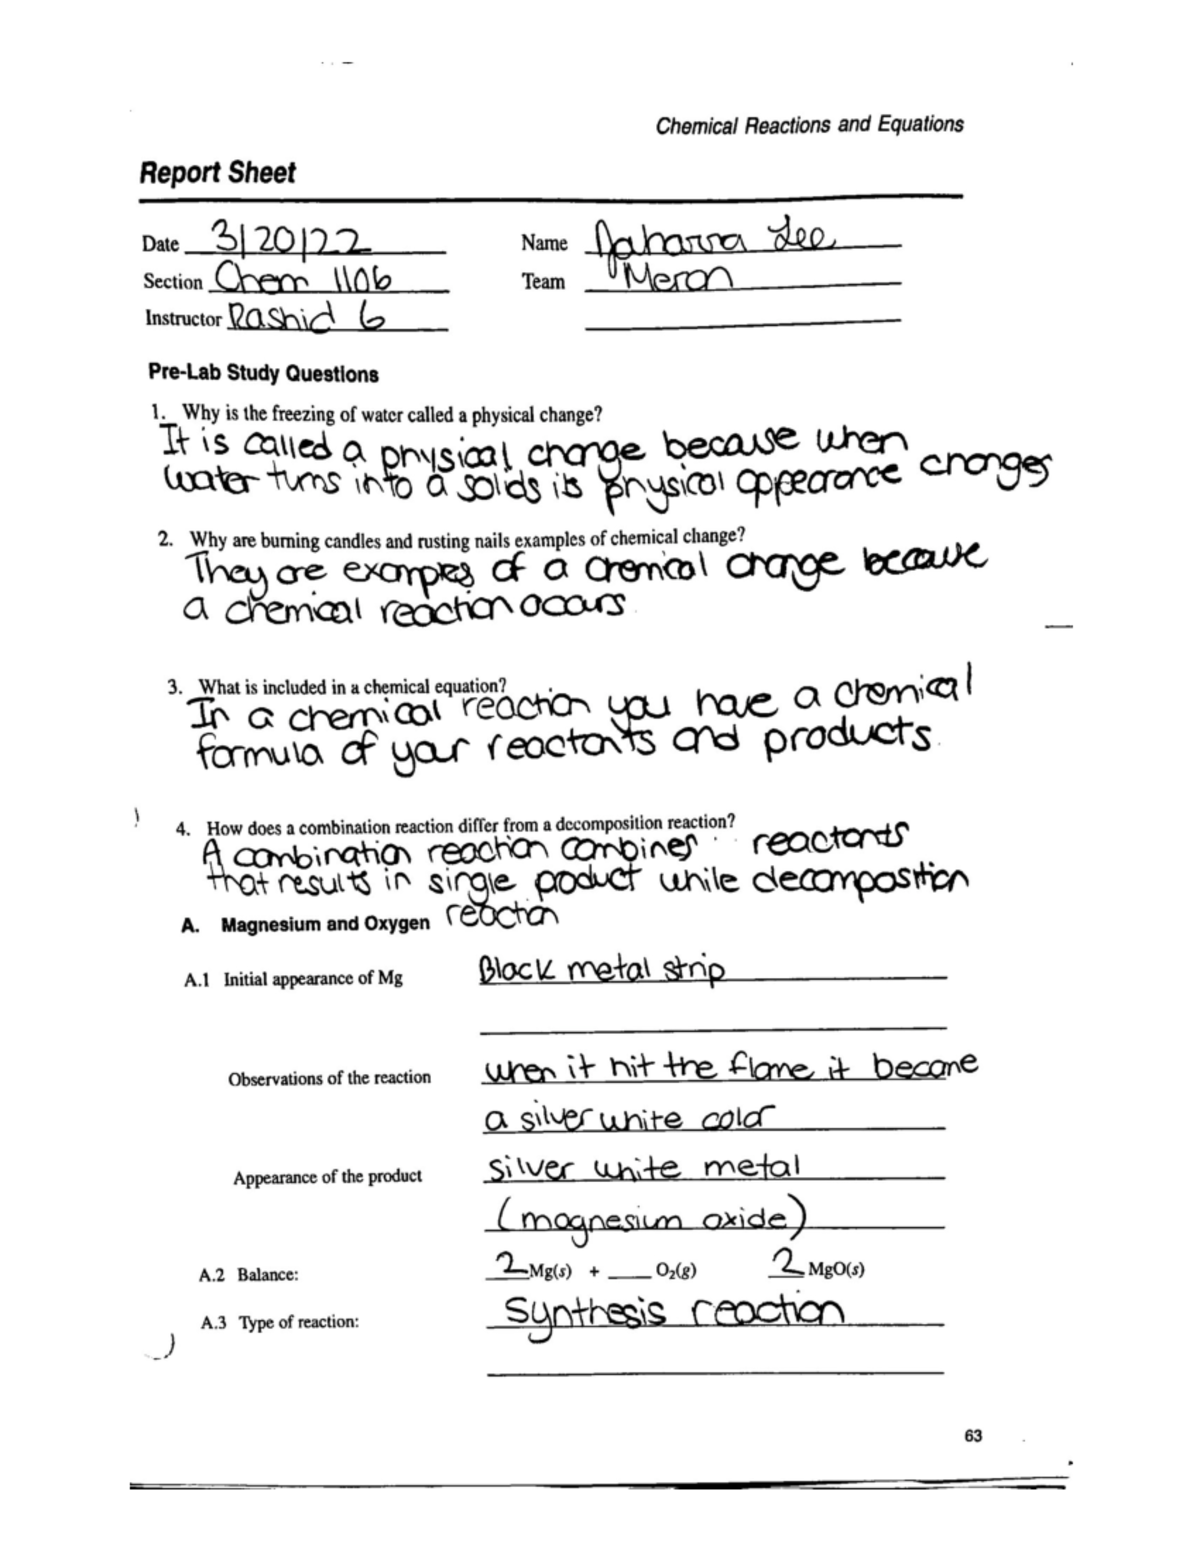 Chemical Reactions and Equations
Report Sheet
Date 3/20/22 Name Lee
Section Chem 1106 Team Meron
Instructor Rashid G
Pre-Lab Study Questions
1. Why is the freezing of water called a physical change?
It is called a physical change because when
water turns into a solids its physical appearance changes
2. Why are burning candles and rusting nails examples of chemical change?
They are examples of a chemical change because
a chemical reaction occurs
3. What is included in a chemical equation?
In a chemical reaction you have a chemical
formula of your reactants and products.
4. How does a combination reaction differ from a decomposition reaction?
A combination reaction combines reactants
that results in single product while decomposition
reaction
A. Magnesium and Oxygen
A.1 Initial appearance of Mg Black metal strip
Observations of the reaction when it hit the flame it became
a silver white color
Appearance of the product silver white metal
(magnesium oxide)
A.2 Balance: 2 Mg(s) + ___ O₂(g) 2 MgO(s)
A.3 Type of reaction: Synthesis reaction
63